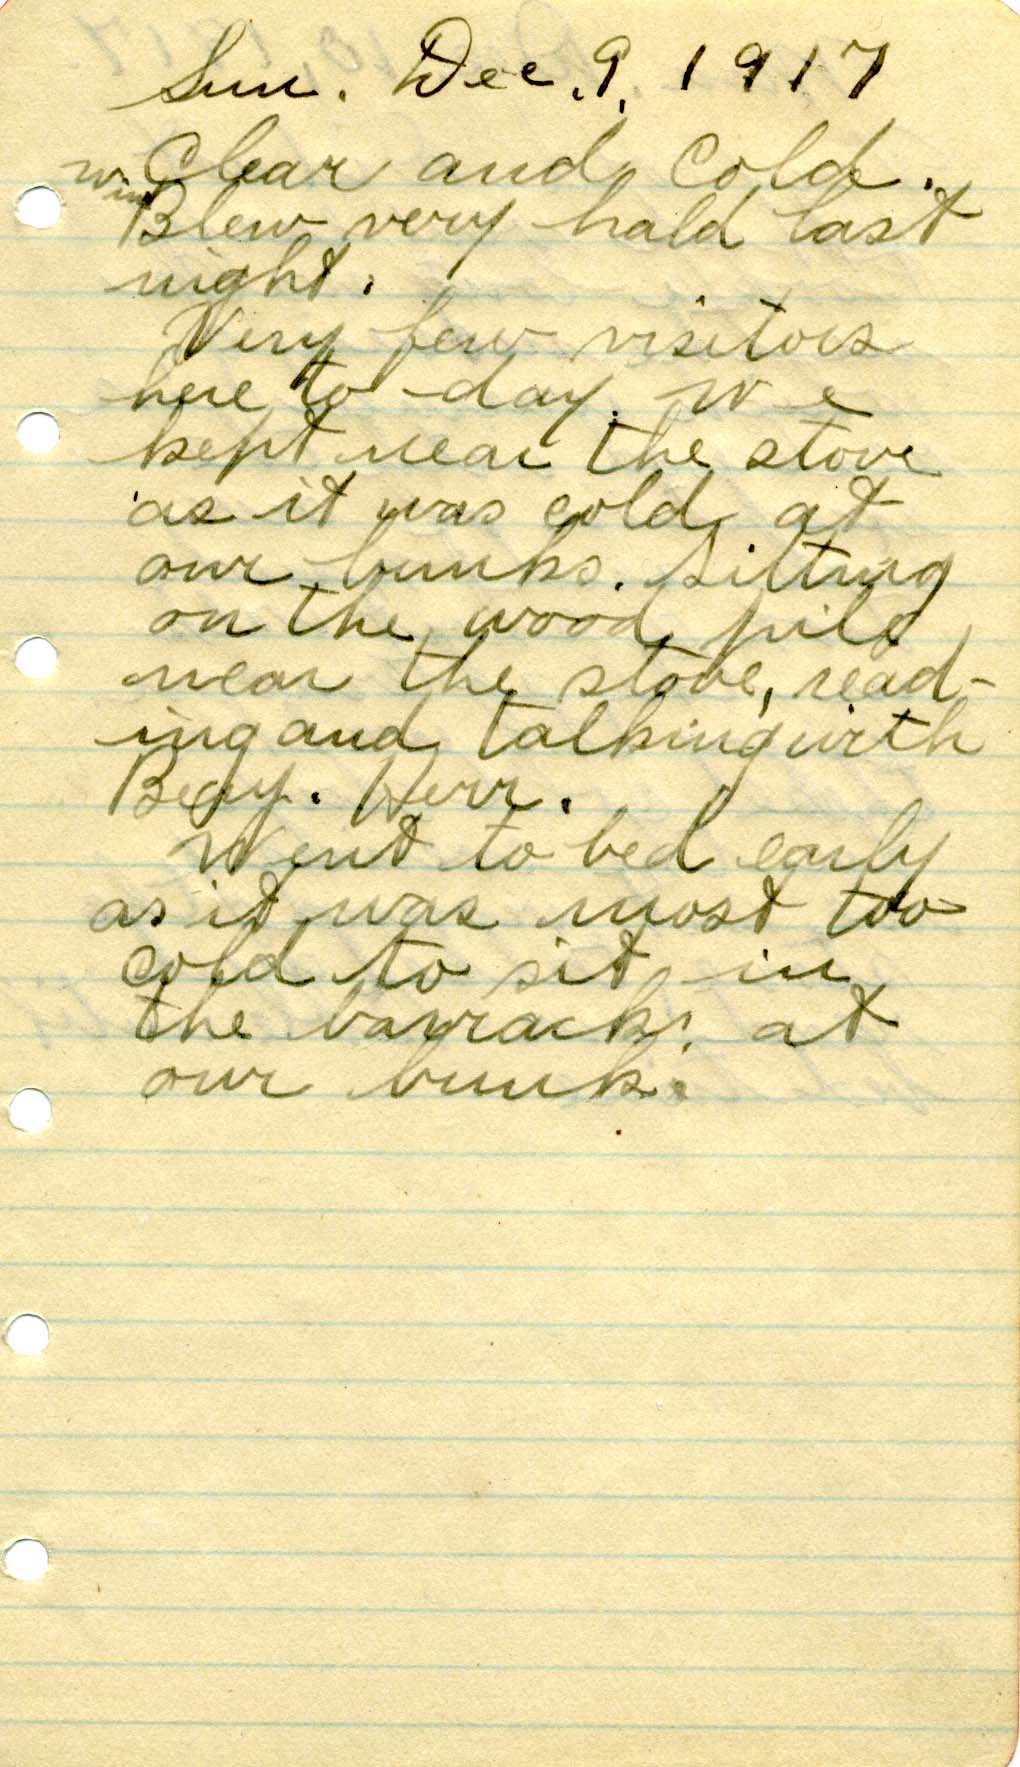 Sun. Dec. 9, 1917
Clear and Cold.
Wind Blew very hald last
night.
Very few visitors
here to-day. We
kept near the stove
as it was cold at
our bunks. Sitting
on the wood pile
near the stove, read-
ing and talking with
Benj. Herr.
Went to bed early
as it was most too
cold to sit in
the barracks at
our bunk.